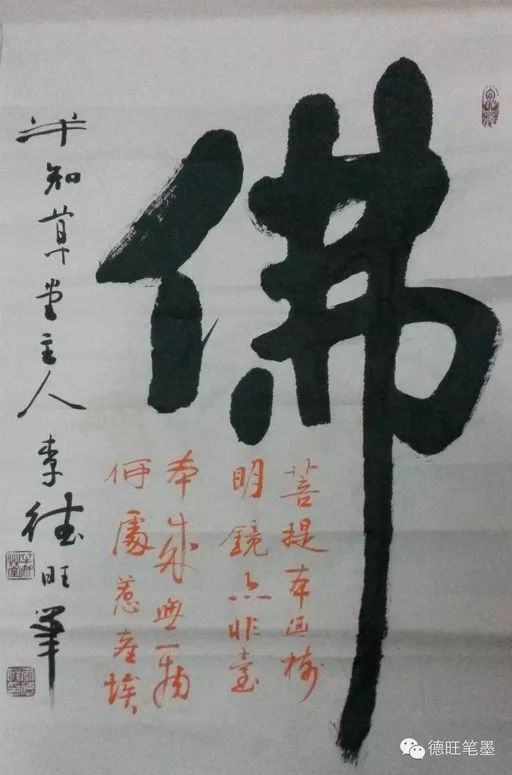 佛
菩提本无樹
明鏡亦非臺
本來無一物
何處惹塵埃
半知草堂主人李德旺筆
德旺笔墨